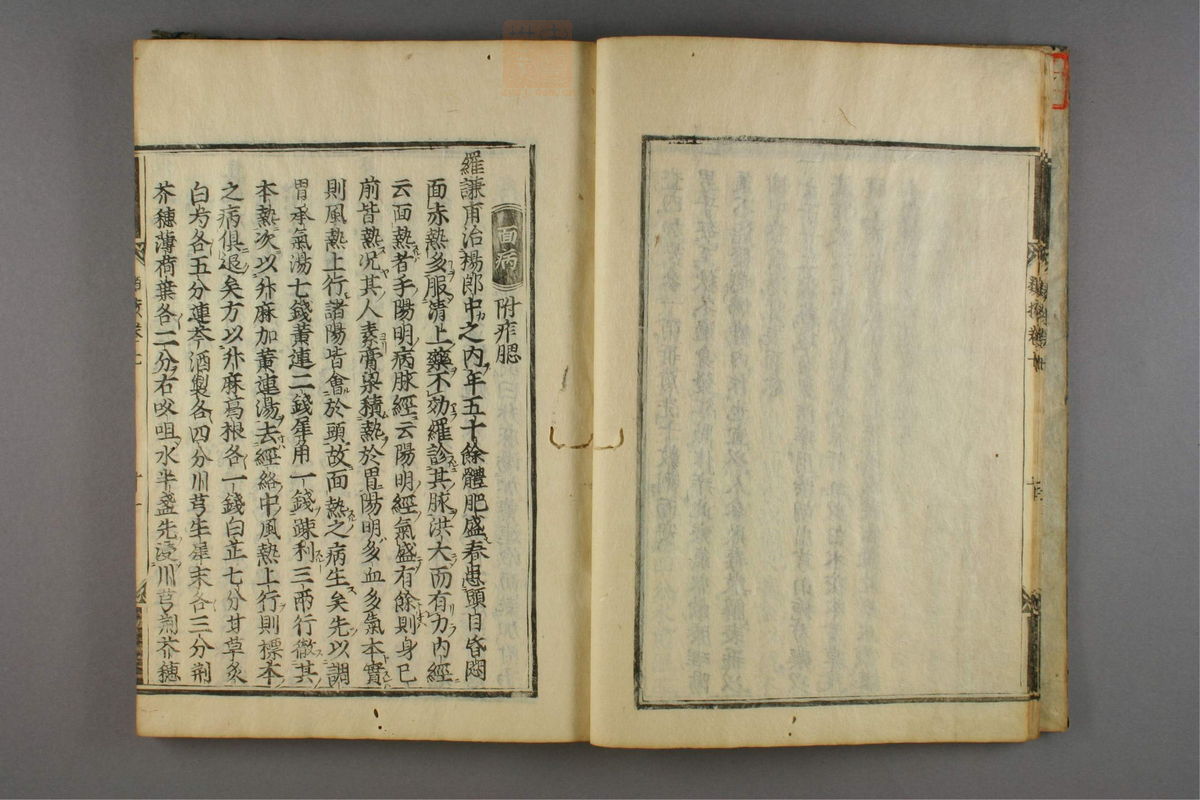 面病 附痄腮
羅謙甫治楊郎中之内年五十餘體肥盛春患頭目昏悶
面赤熱多服清上藥不効羅診其脉洪大而有力内經
云面熱者手陽明病脉經云陽明經氣盛有餘則身已
前皆熱况其人素膏粱積熱於胃陽明多血多氣本實
則風熱上行諸陽皆會於頭故面熱之病生矣先以調
胃承氣湯七錢黄連二錢犀角一錢踈利三兩行徹其
本熱次以升麻加黄連湯去經絡中風熱上行則標本
之病俱退矣方以升麻葛根各一錢白芷七分甘草炙
白芍各五分連芩酒製各四分川芎生犀末各三分荆
芥穗薄荷葉各二分右㕮咀水半盞先浸川芎荆芥穗